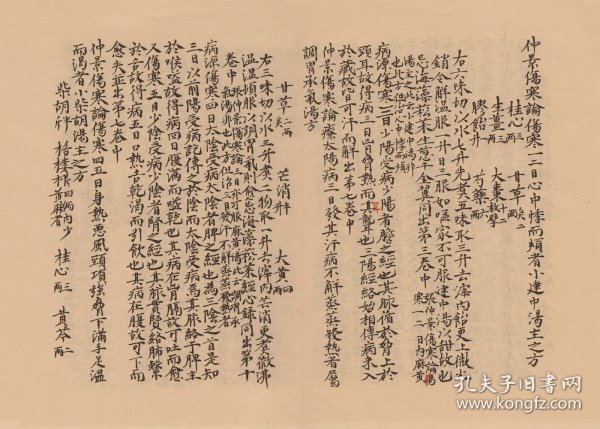 仲景傷寒論傷寒一二日心中悸而煩者小建中湯主之方
桂心三兩 甘草二兩炙
生薑三兩 大棗十二枚擘
膠飴一升 芍藥六兩
右六味切以水七升先煮五味取三升去滓内飴更上微火
銷令解温服一升日三服如嘔家不可服建中湯以甜故也
忌海藻菘菜生葱
病源傷寒二日少陽受病少陽者膽之經也其脉循於脅上於
頭耳故得病三日胷脅熱而耳聾也三陽經絡始相傳病未入
於藏故皆可汗而解出第七卷中
仲景傷寒論療太陽病三日發其汗病不解蒸蒸發熱者屬
調胃承氣湯方
甘草二兩炙 芒消半升 大黄四兩
右三味切以水三升煮二物取一升去滓内芒消更煮微沸
温温頓服以調胃氣則愈忌海藻菘菜經心録同出第十
病源傷寒四日太陰受病太陰者脾之經也為三陰之首是知
三日以前陽受病訖傳之於陰而太陰受病焉其脉絡於脾主
於喉嗌故得病四日腹滿而嗌乾也其病在胷膈故可吐而愈
又傷寒五日少陰受病少陰者腎之經也其脉貫腎絡肺繫
於舌故得病五日口熱舌乾渴而引飲也其病在腹故可下而
愈矣並出第七卷中
仲景傷寒論傷寒四五日身熱惡風頸項強脅下滿手足温
而渴者小柴胡湯主之方
柴胡半斤 栝樓根四兩 桂心三兩 黄芩二兩
孔夫子旧書网
www.kongfz.com